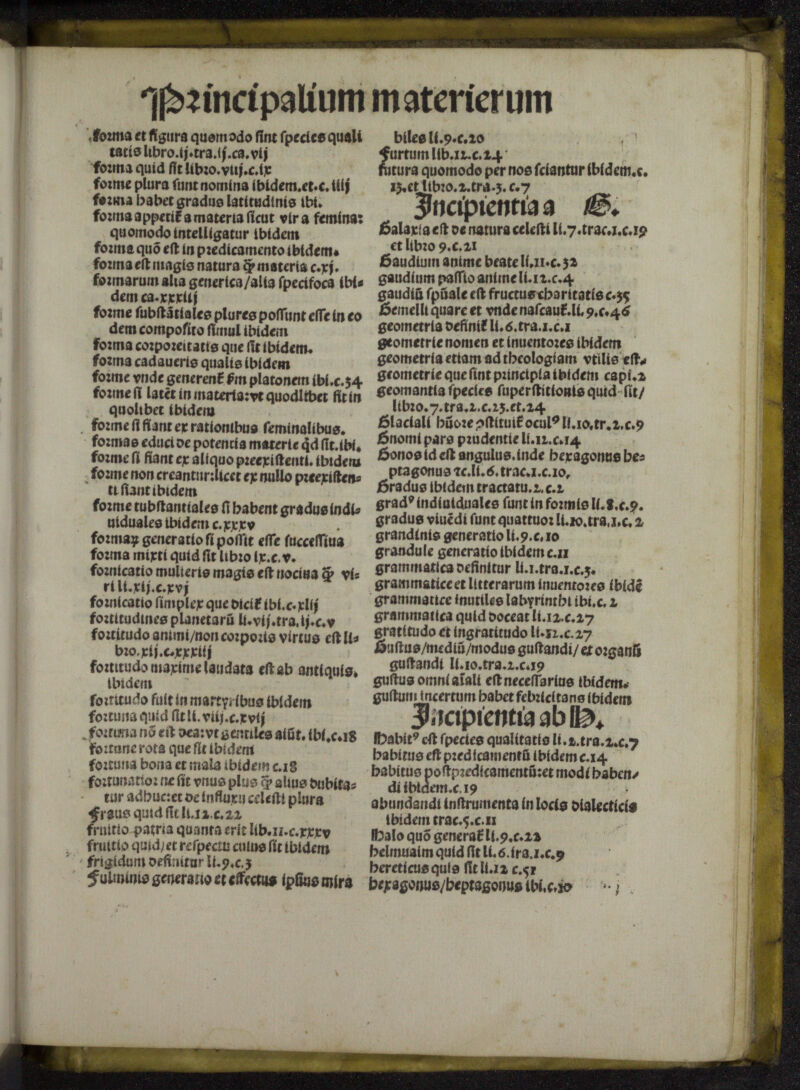 Principalium materierum
forma et figura quomodo sint species quali
tatis libro.ij.tra.ij.ca.vij
forma quid sit libro.viij.c.ix
forme plura sunt nomina ibidem.et.c.iiij
forma habet gradus latitudinis ibi.
forma appetit a materia sicut vir a femina:
quomodo intelligatur ibidem
forma quō est in predicamento ibidem.
forma est magis natura ꝙ materia c.xj.
formarum alia generica/alia specifoca ibi⸗
dem ca.xxxiij
forme substātiales plures possunt esse in eo
dem composito simul ibidem
forma corporeitatis que sit ibidem.
forma cadaueris qualis ibidem
forme vnde generent ẜm platonem ibi.c.34
forme si latēt in materia:vt quodlibet fit in
quolibet ibidem
forme si fiant ex rationibus seminalibus.
formas educi de potentia materie qd sit.ibi.
forme si fiant ex aliquo preexistenti. ibidem
forme non creantur:licet ex nullo preexisten⸗
ti fiant ibidem
forme substantiales si habent gradus indi⸗
uiduales ibidem c.xxxv
formaꝝ generatio si possit esse successiua
forma mixti quid sit libro ix.c.v.
fornicatio mulieris magis est nociua ꝙ vi⸗
ri li.xij.c.xvj
fornicatio simplex que dicit ibi.c.xliij
fortitudines planetarū li.vij.tra.ij.c.v
fortitudo animi/non corporis virtus est li⸗
bro.xij.c.xxxiij
fortitudo maxime laudata est ab antiquis.
ibidem
fortitudo fuit in martyribus ibidem
fortuna quid sit li.viij.c.xvij
fortuna nō est dea:vt gentiles aiūt. ibi.c.18
fortune rota que sit ibidem
fortuna bona et mala ibidem c.18
fortunatior ne sit vnus plus ꝙ alius dubita⸗
tur adhuc:et de influxu celesti plura
Fraus quid sit li.12.c.22
fruitio patria quanta erit lib.11.c.xxxv
fruitio quid/et respectu cuius sit ibidem
frigidum definitur li.9.c.3
Fulminis generatio et effectus ipsius mira
biles li.9.c.20
Furtum lib.12.c.24
futura quomodo per nos sciantur ibidem.c.
13.et libro.2.tra.3.c.7
Incipientia a G.
Galaxia est de natura celesti li.7.trac.1.c.19
et libro 9.c.21
Gaudium anime beate li.11.c.32
gaudium passio anime li.12.c.4
gaudiū spūale est fructus charitatis c.35
Gemelli quare et vnde nascaut.li.9.c.46
geometria definit li.6.tra.1.c.1
geometrie nomen et inuentores ibidem
geometria etiam ad theologiam vtilis est.
geometrie que sint principia ibidem capi.2
geomantia species superstitionis quid sit/
libro.7.tra.2.c.23.et.24
Glaciali hūore ↄstituit oculꝰ li.10.tr.2.c.9
Gnomi pars prudentie li.12.c.14
Gonos id est angulus.inde hexagonus he⸗
ptagonus ⁊c.li.6.trac.1.c.10.
Gradus ibidem tractatu.2.c.2
gradꝰ indiuiduales sunt in formis li.8.c.9.
gradus viuēdi sunt quattuor li.10.tra.1.c.2
grandinis generatio li.9.c.10
grandule generatio ibidem c.11
grammatica definitur li.1.tra.1.c.3.
grammatice et litterarum inuentores ibidē
grammatice inutiles labyrinthi ibi.c.2
grammatica quid doceat li.12.c.27
gratitudo et ingratitudo li.12.c.27
Gustus/mediū/modus gustandi/et organū
gustandi li.10.tra.2.c.19
gustus omni aīali est necessarius ibidem.
gustum incertum habet febricitans ibidem
Incipientia ab H.
Habitꝰ est species qualitatis li.2.tra.2.c.7
habitus est predicamentū ibidem c.14
habitus postpredicamentū:et modi haben⸗
di ibidem.c.19
abundandi instrumenta in locis dialecticis
ibidem trac.5.c.11
Halo quō generat li.9.c.22
helmuaim quid sit li.6.tra.1.c.9
hereticus quis sit li.12 c.51
hexagonus/heptagonus ibi.c.10